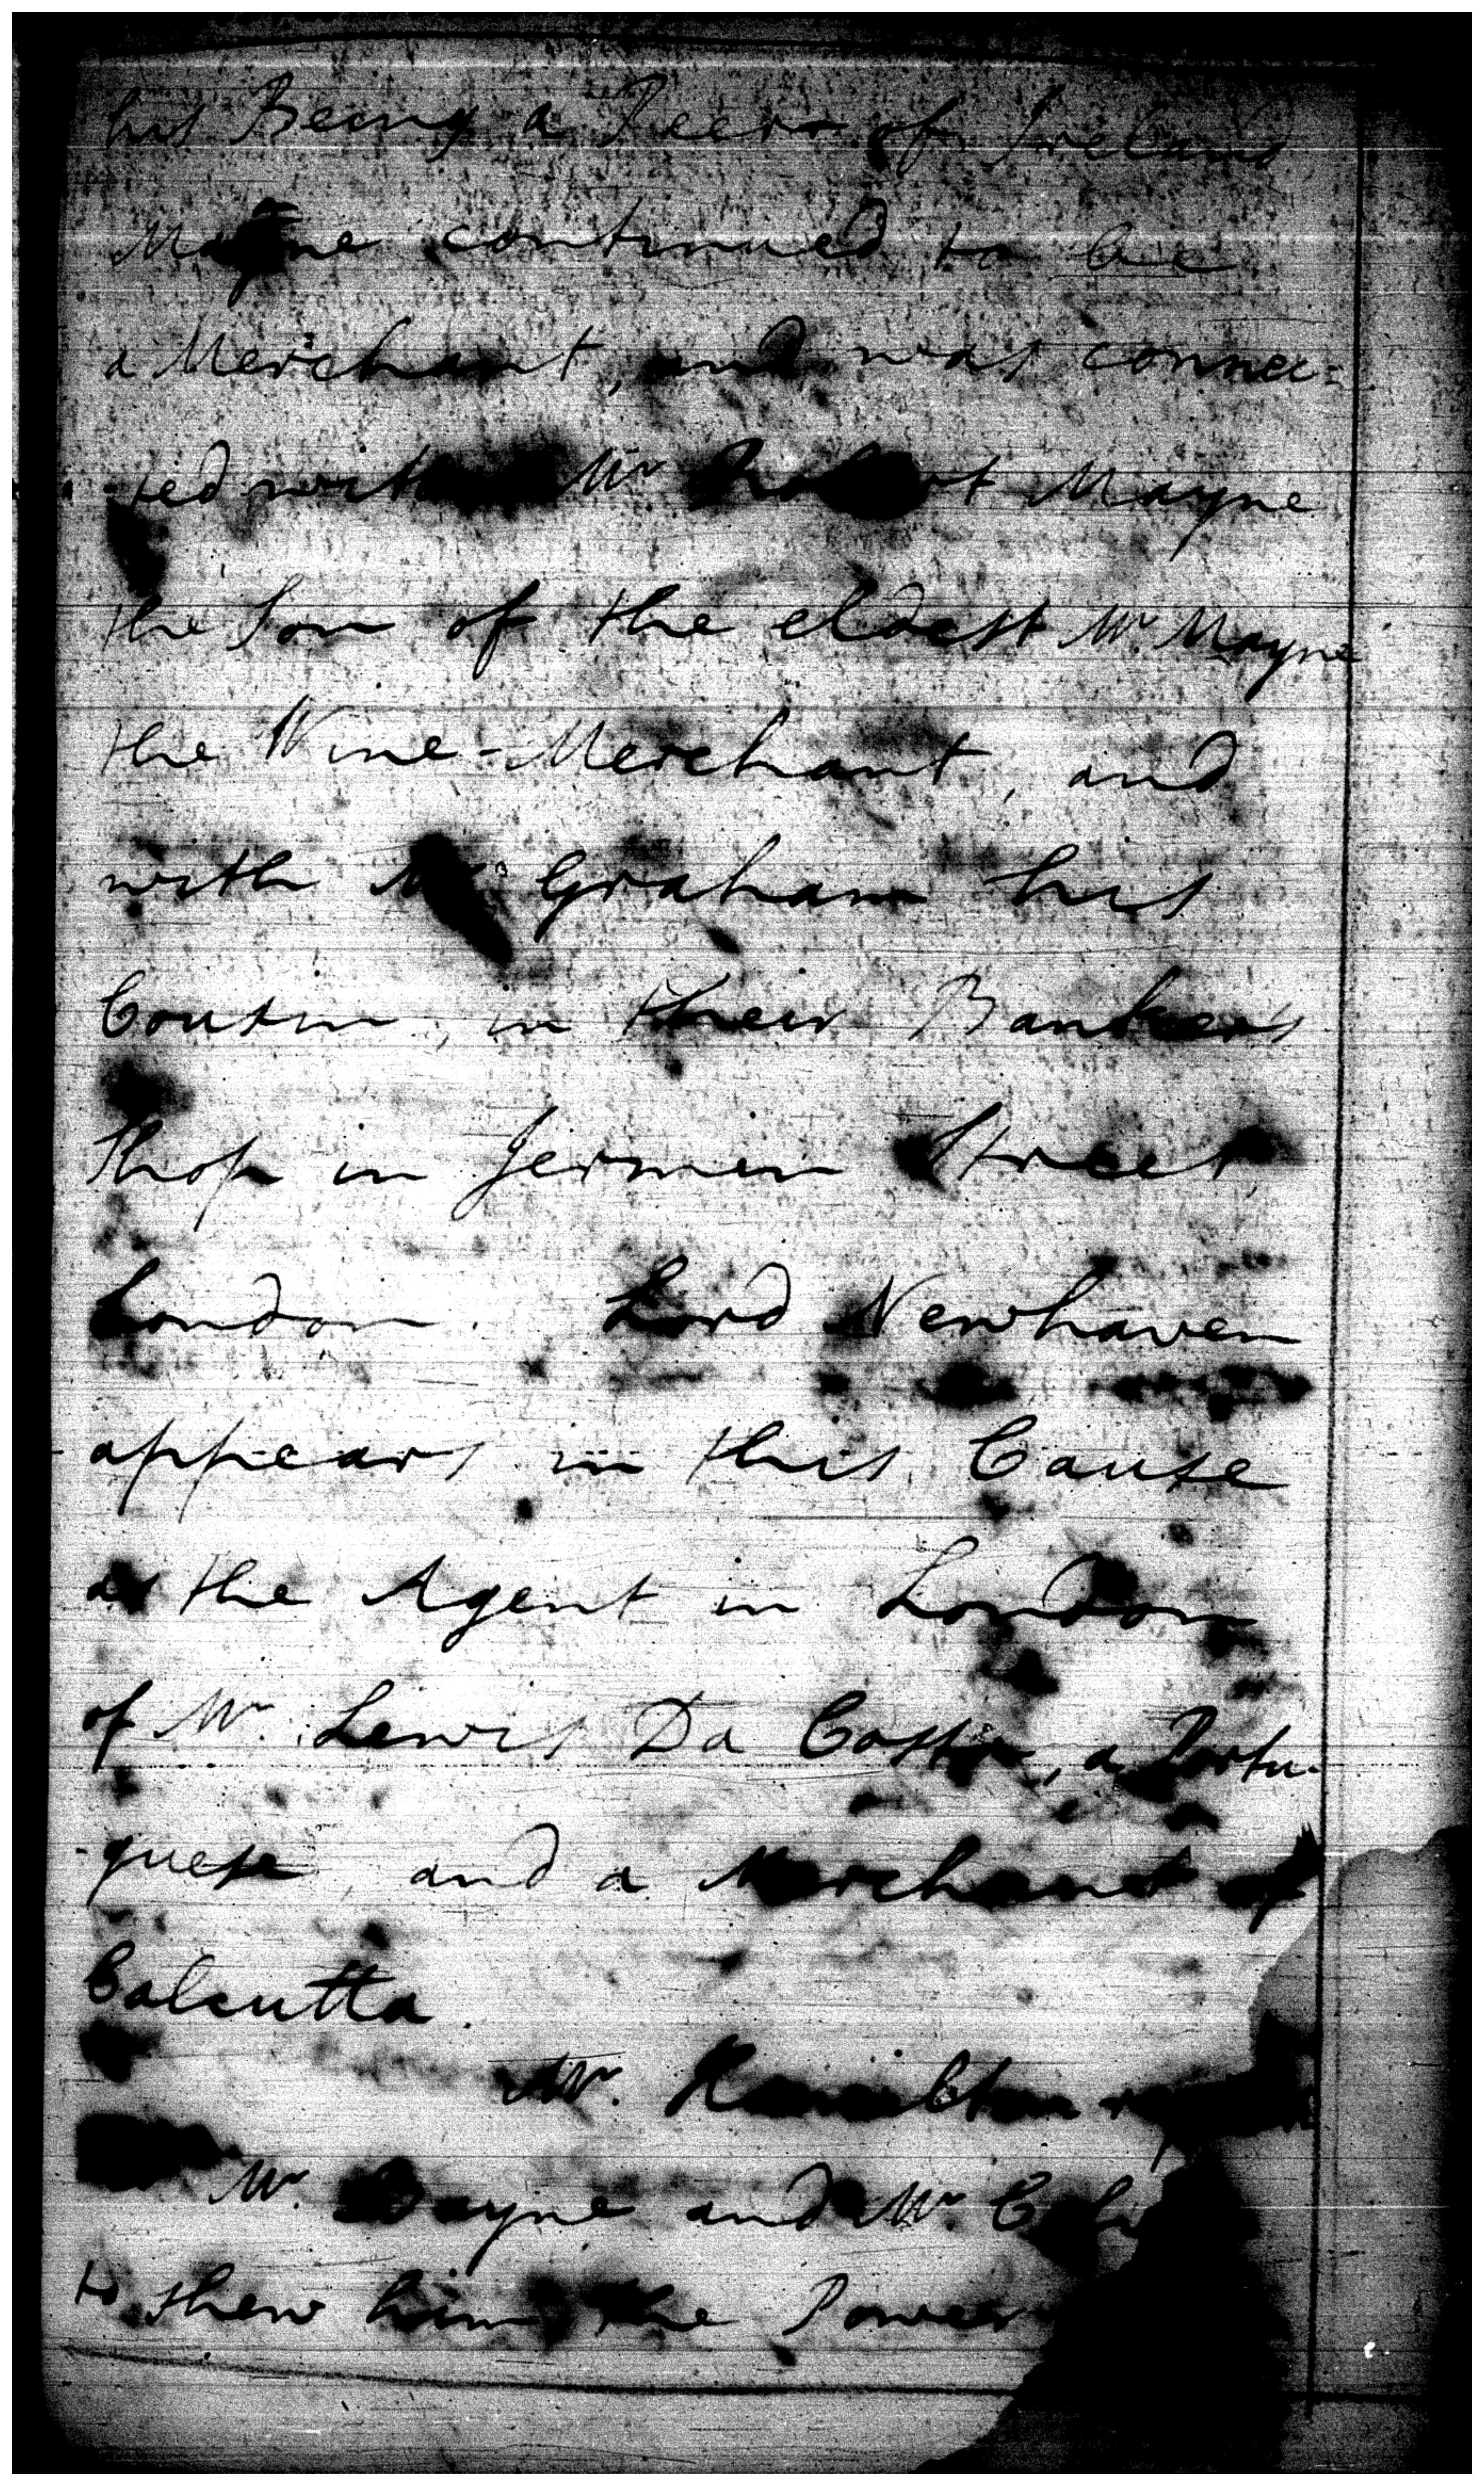 his Being a Peer of Ireland
Mayne continued to be
a Merchant, and was connec=
-ted with Mr Robert Mayne
the Son of the eldest Mr. Mayne
the Wine-Merchant, and
with Mr Graham his
Cousin, in their Bankers
Shop in Jermin Street
London. Lord Newhaven
appears in this Cause
as the Agent in London
of Mr. Lewis Da Costa, a Portu-
-guese, and a Merchant of
Calcutta.
Mr. Hamilton
Mr. Bayne and Mr.
to shew him the Power